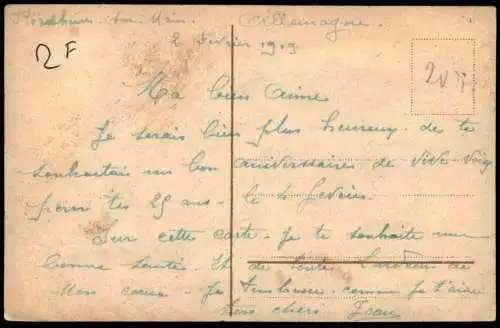 sur Main. Allemagne.
2 Fevrier 1919
2 F
Ma bien Aimee
Je serais bien plus heureux de te
souhaiter un bon anniversaire de vive voix
pour tes 25 ans. le 4 Fevrier.
Sur cette carte. Je te souhaite une
bonne santé. Et de toute
Mon coeur. Je t'embrasse comme je t'aime
ton cheri Jean